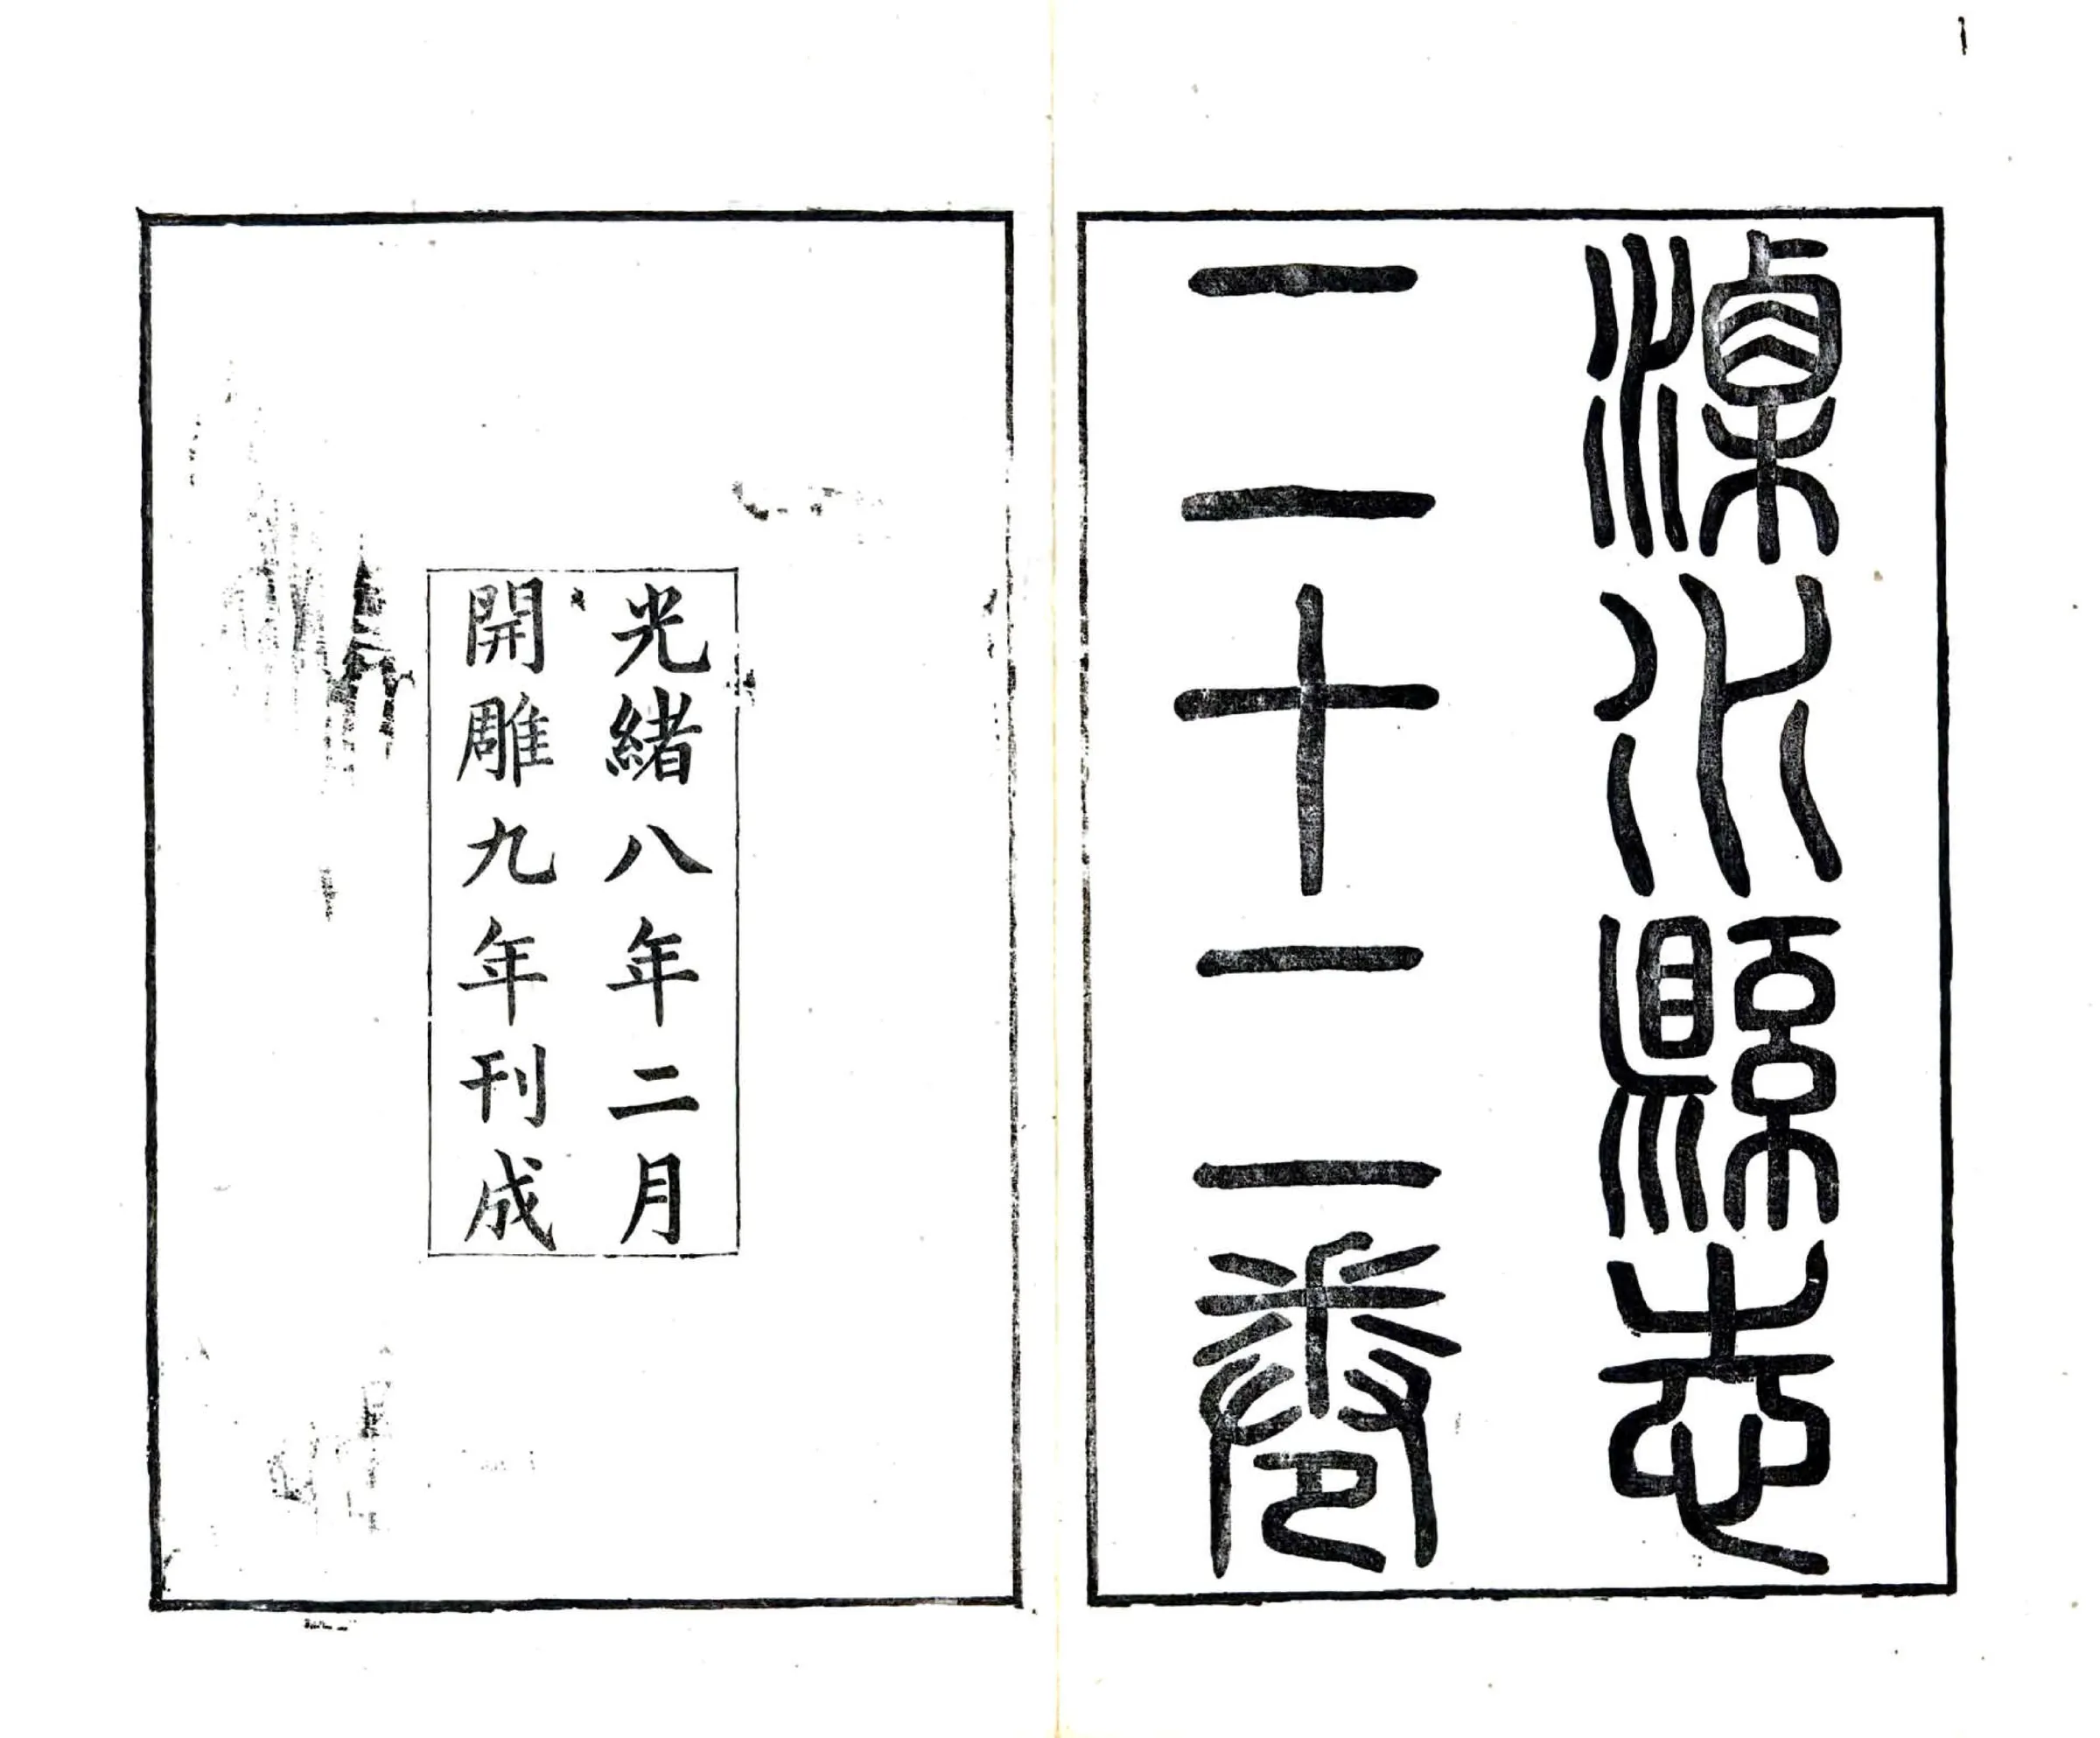 溧水縣志
二十二卷
光緒八年二月
開雕九年刊成